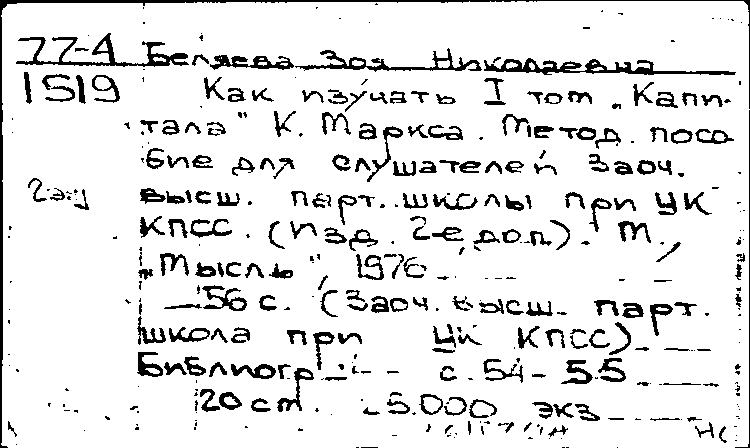 77-4 Беляева Зоя Николаевна
1519 Как изучать I том „Капи-
тала" К. Маркса. Метод. посо-
бие для слушателей Заоч.
2 экз высш. парт. школы при ЦК
КПСС. (Изд. 2-е, доп.). М.,
„Мысль", 1976
56 с. (Заоч. высш. парт.
школа при ЦК КПСС)
Библиогр.: с. 54-55
20 см. 5.000 экз